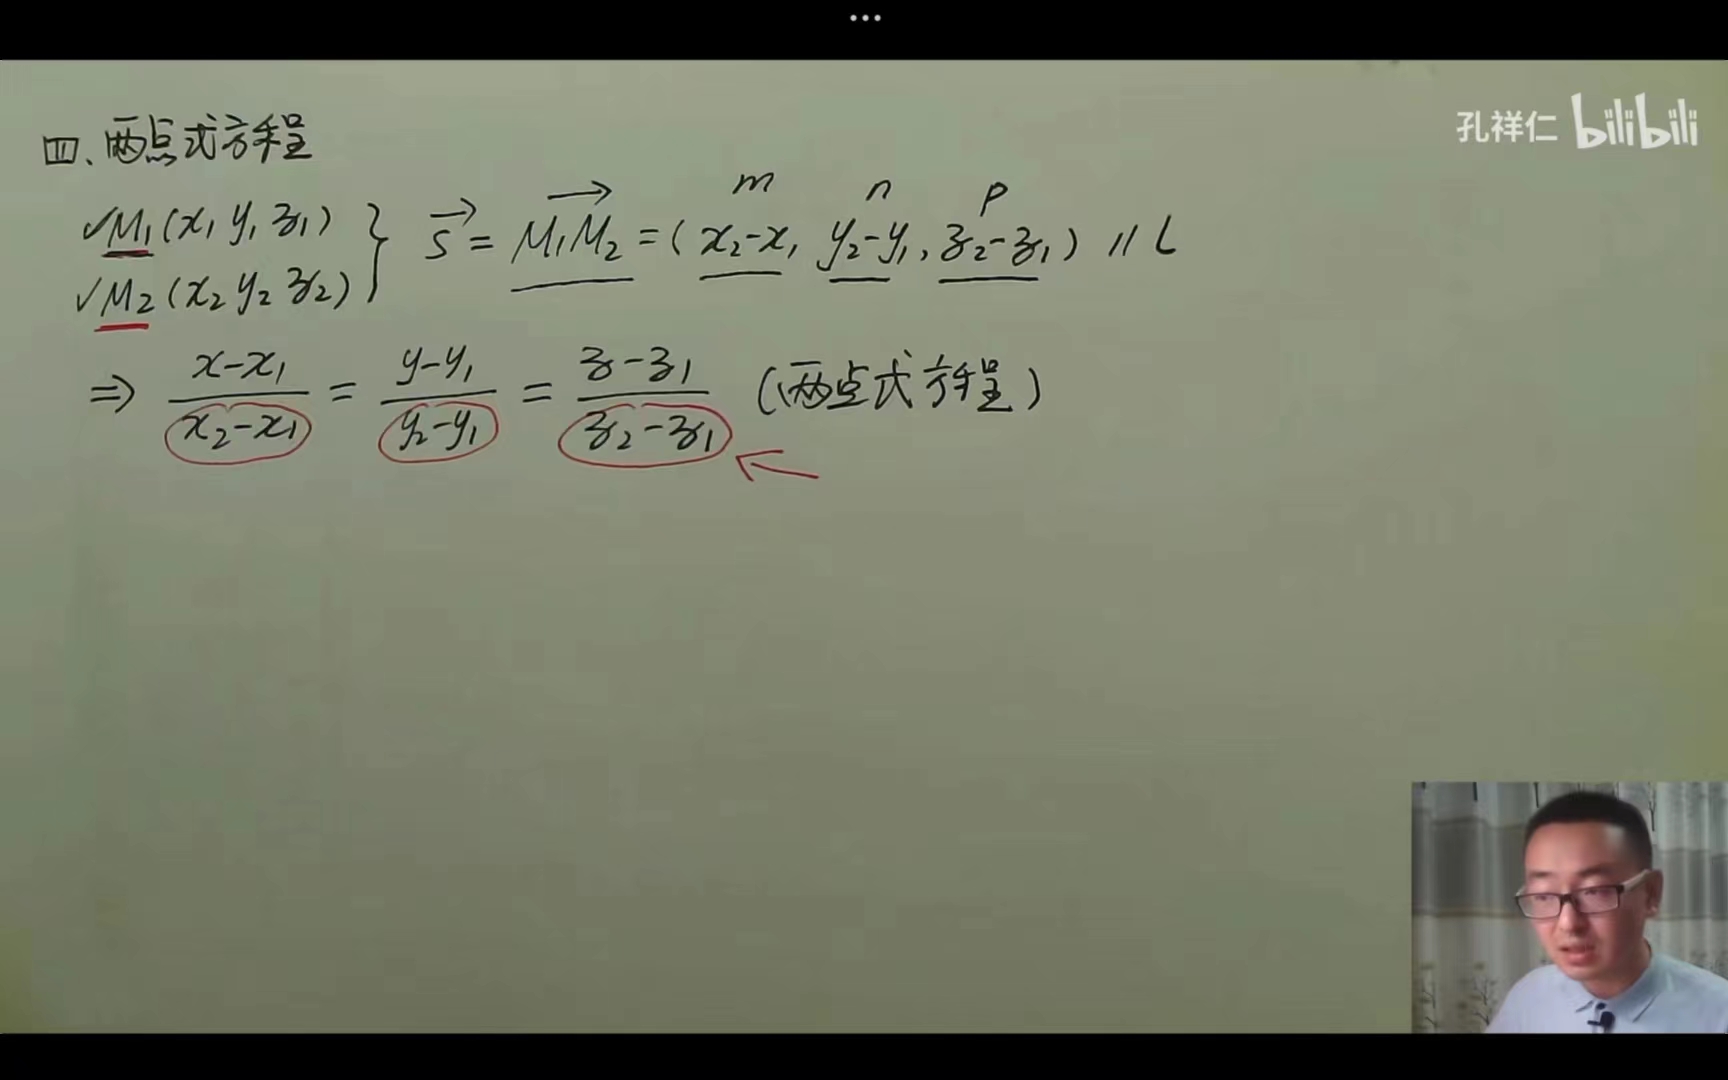 ...
孔祥仁 bilibili
四、两点式方程
✓M₁(x₁ y₁ z₁)
✓M₂(x₂ y₂ z₂) } s⃗ = M₁M₂⃗ = (x₂-x₁, y₂-y₁, z₂-z₁) // L
m n p
⇒ (x-x₁)/(x₂-x₁) = (y-y₁)/(y₂-y₁) = (z-z₁)/(z₂-z₁) (两点式方程)